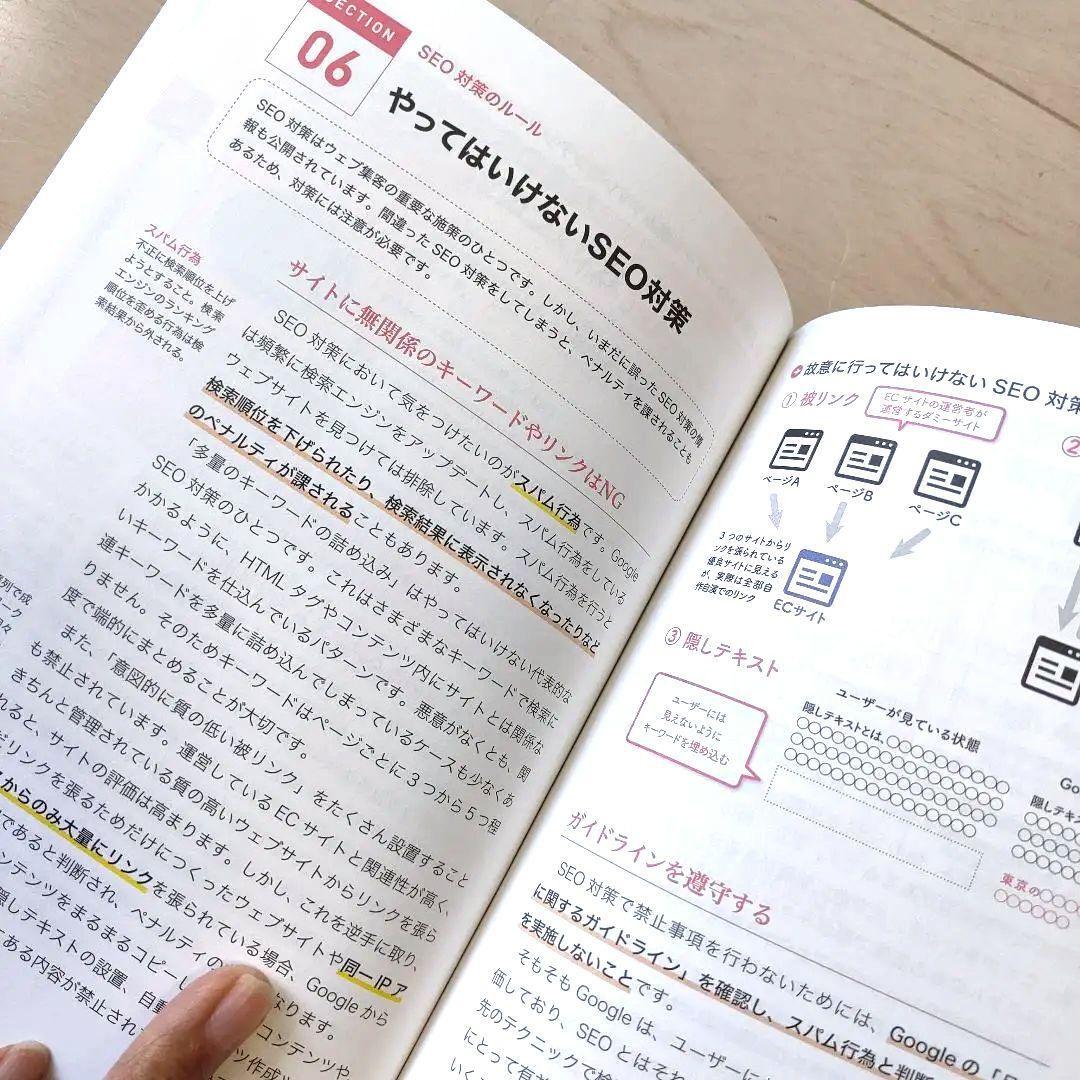 SECTION
06
SEO 対策のルール
やってはいけないSEO対策
SEO 対策はウェブ集客の重要な施策のひとつです。しかし、いまだに誤った SEO 対策の情
報も公開されています。間違った SEO 対策をしてしまうと、ペナルティを課されることも
あるため、対策には注意が必要です。
スパム行為
不正に検索順位を上げ
ようとすること。検索
エンジンのランキング
順位を歪める行為は検
索結果から外される。
サイトに無関係のキーワードやリンクはNG
SEO 対策において気をつけたいのがスパム行為です。Google
は頻繁に検索エンジンをアップデートし、スパム行為をしている
ウェブサイトを見つけては排除しています。スパム行為を行うと
検索順位を下げられたり、検索結果に表示されなくなったりなど
のペナルティが課されることもあります。
「多量のキーワードの詰め込み」はやってはいけない代表的な
SEO 対策のひとつです。これはさまざまなキーワードで検索に
かかるように、HTML タグやコンテンツ内にサイトとは関係な
いキーワードを仕込んでいるパターンです。悪意がなくとも、関
連キーワードを多量に詰め込んでしまっているケースも少なくあ
りません。そのためキーワードはページごとに3つから5つ程
度で端的にまとめることが大切です。
また、「意図的に質の低い被リンク」をたくさん設置すること
も禁止されています。運営している EC サイトと関連性が高く、
きちんと管理されている質の高いウェブサイトからリンクを張ら
れると、サイトの評価は高まります。しかし、これを逆手に取り、
リンクを張るためだけにつくったウェブサイトや同一 IP ア
からのみ大量にリンクを張られている場合、Google から
であると判断され、ペナルティの
なります。
ンテンツをまるまるコピーし
コンテンツや、
隠しテキストの設置、自動
ツ作成ツ
にある内容が禁止され
列で成
ーク
故意に行ってはいけない SEO 対策
① 被リンク
EC サイトの運営者が
運営するダミーサイト
②
ページA
ページB
ページC
3 つのサイトからリ
ンクを張られている
優良サイトに見える
が、実際は全部自
作自演でのリンク
ECサイト
③ 隠しテキスト
ユーザーには
見えないように
キーワードを埋め込む
ユーザーが見ている状態
隠しテキストとは、○○○○○○○○
Go
隠しテキス
東京の○○
ガイドラインを遵守する
SEO 対策で禁止事項を行わないためには、Google の「
に関するガイドライン」を確認し、スパム行為と判断
を実施しないことです。
そもそも Google は、ユーザーに
価しており、SEO とはそれ
先のテクニックで検
にとって有